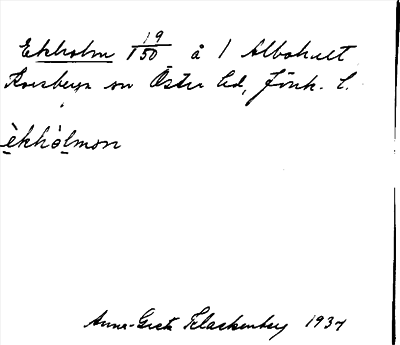 Ekholm 19/150 å 1 Albohult
Korsberga sn Östra hd, Jönk. l.
èkhòlmon
Anna-Greta Klackenberg 1934